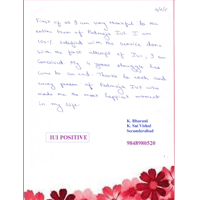 First of all I am very thankful to the
entire team of Padmaja IVF. I am
100% satisfied with the service done
with the first attempt of IUI, I am
conceived. My 4 years struggle has
come to an end. Thanks to each and
every person of Padmaja IVF who
made me the most happiest moment
in my life.
K. Bhavani
K. Sai Vishal
Secunderabad
9848980520
IUI POSITIVE